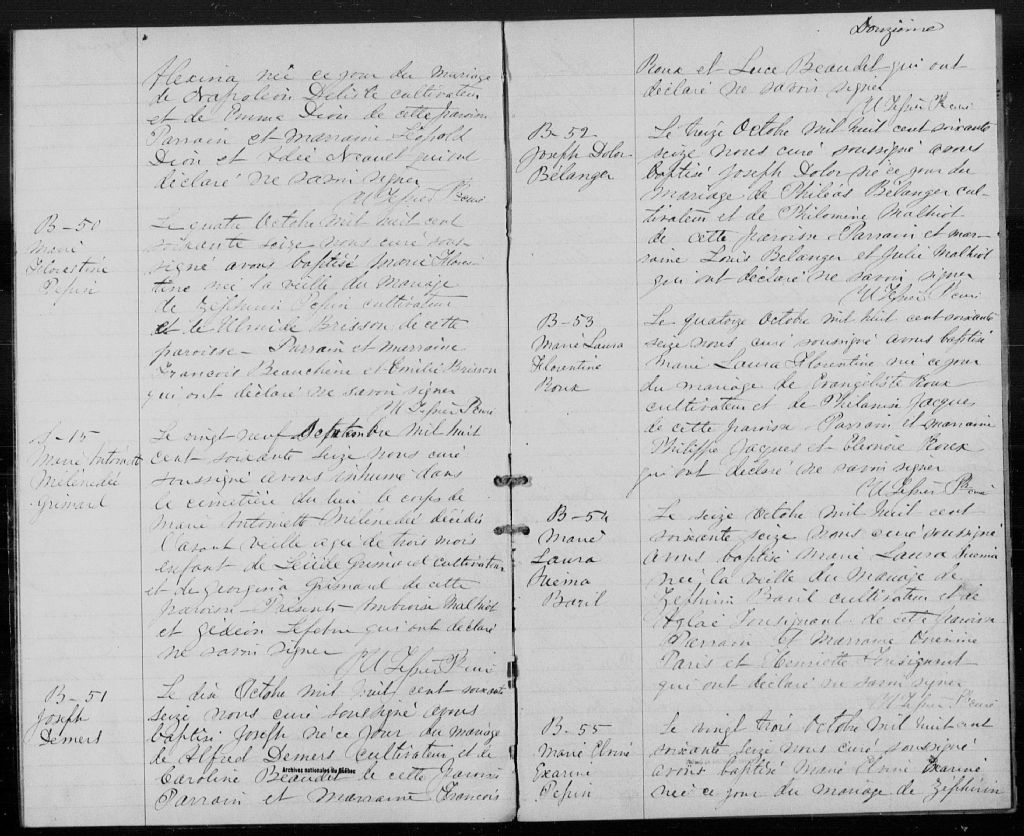 Alexina née ce jour du mariage
de Napoléon Delisle cultivateur
et de Emma Dion de cette paroisse
Parrain et marraine Léopold
Dion et qui ont
déclaré ne savoir signer
Ptre curé
B-50
Marie
Florestine
Pepin
Le quatre Octobre mil huit cent
soixante seize nous curé sous-
signé avons baptisé Marie Flores-
tine née la veille du mariage
de Zéphirin Pepin cultivateur
et de Brisson de cette
paroisse - Parrain et marraine
Francois Beauchène et Emilie Brisson
qui ont déclaré ne savoir signer
Ptre curé
S-15
Marie Antoinette
Mélénedée
Grimard
Le vingt neuf mil huit
cent soixante seize nous curé
soussigné avons inhumé dans
le cimetière du lieu le corps de
Marie Antoinette Mélénedée décédée
l'avant veille agée de trois mois
enfant de Grimard cultivateur
et de Georgina Grimard de cette
paroisse - Présents - Ambroise Malhiot
et Gédéon Lefebre qui ont déclaré
ne savoir signer
Ptre curé
B-51
Joseph
Demers
Le dix Octobre mil huit cent soixante
seize nous curé soussigné avons
baptisé Joseph né ce jour du mariage
de Alfred Demers cultivateur et de
Caroline Beaudet de cette paroisse
Archives nationales du Québec
Parrain et Marraine François
Douzième
Roux et Luce Beaudet qui ont
déclaré ne savoir signer
Ptre curé
B-52
Joseph Dolor
Bélanger
Le treize Octobre mil huit cent soixante
seize nous curé soussigné avons
baptisé Joseph Dolor né ce jour du
mariage de Philéas Bélanger cul-
tivateur et de Philomène Malhiot
de cette paroisse Parrain et mar-
raine Louis Bélanger et Julie Malhiot
qui ont déclaré ne savoir signer
Ptre curé
B-53
Marie Laura
Florentine
Roux
Le quatorze Octobre mil huit cent soixante
seize nous curé soussigné avons baptisé
Marie Laura Florentine née ce jour
du mariage de Evangéliste Roux
cultivateur et de Philamise Jacques
de cette paroisse Parrain et marraine
Philippe Jacques et Eléonore Roux
qui ont déclaré ne savoir signer
Ptre curé
B-54
Marie
Laura
Baril
Le seize Octobre mil huit cent
soixante seize nous curé soussigné
avons baptisé Marie Laura
née la veille du mariage de
Zéphirin Baril cultivateur et de
Aglaé Tousignant de cette paroisse
Parrain et Marraine Onésime
Paris et Henriette Tousignant
qui ont déclaré ne savoir signer
Ptre curé
B-55
Marie
Exarine
Pepin
Le vingt trois Octobre mil huit cent
soixante seize nous curé soussigné
avons baptisé Marie Exarine
née ce jour du mariage de Zéphirin